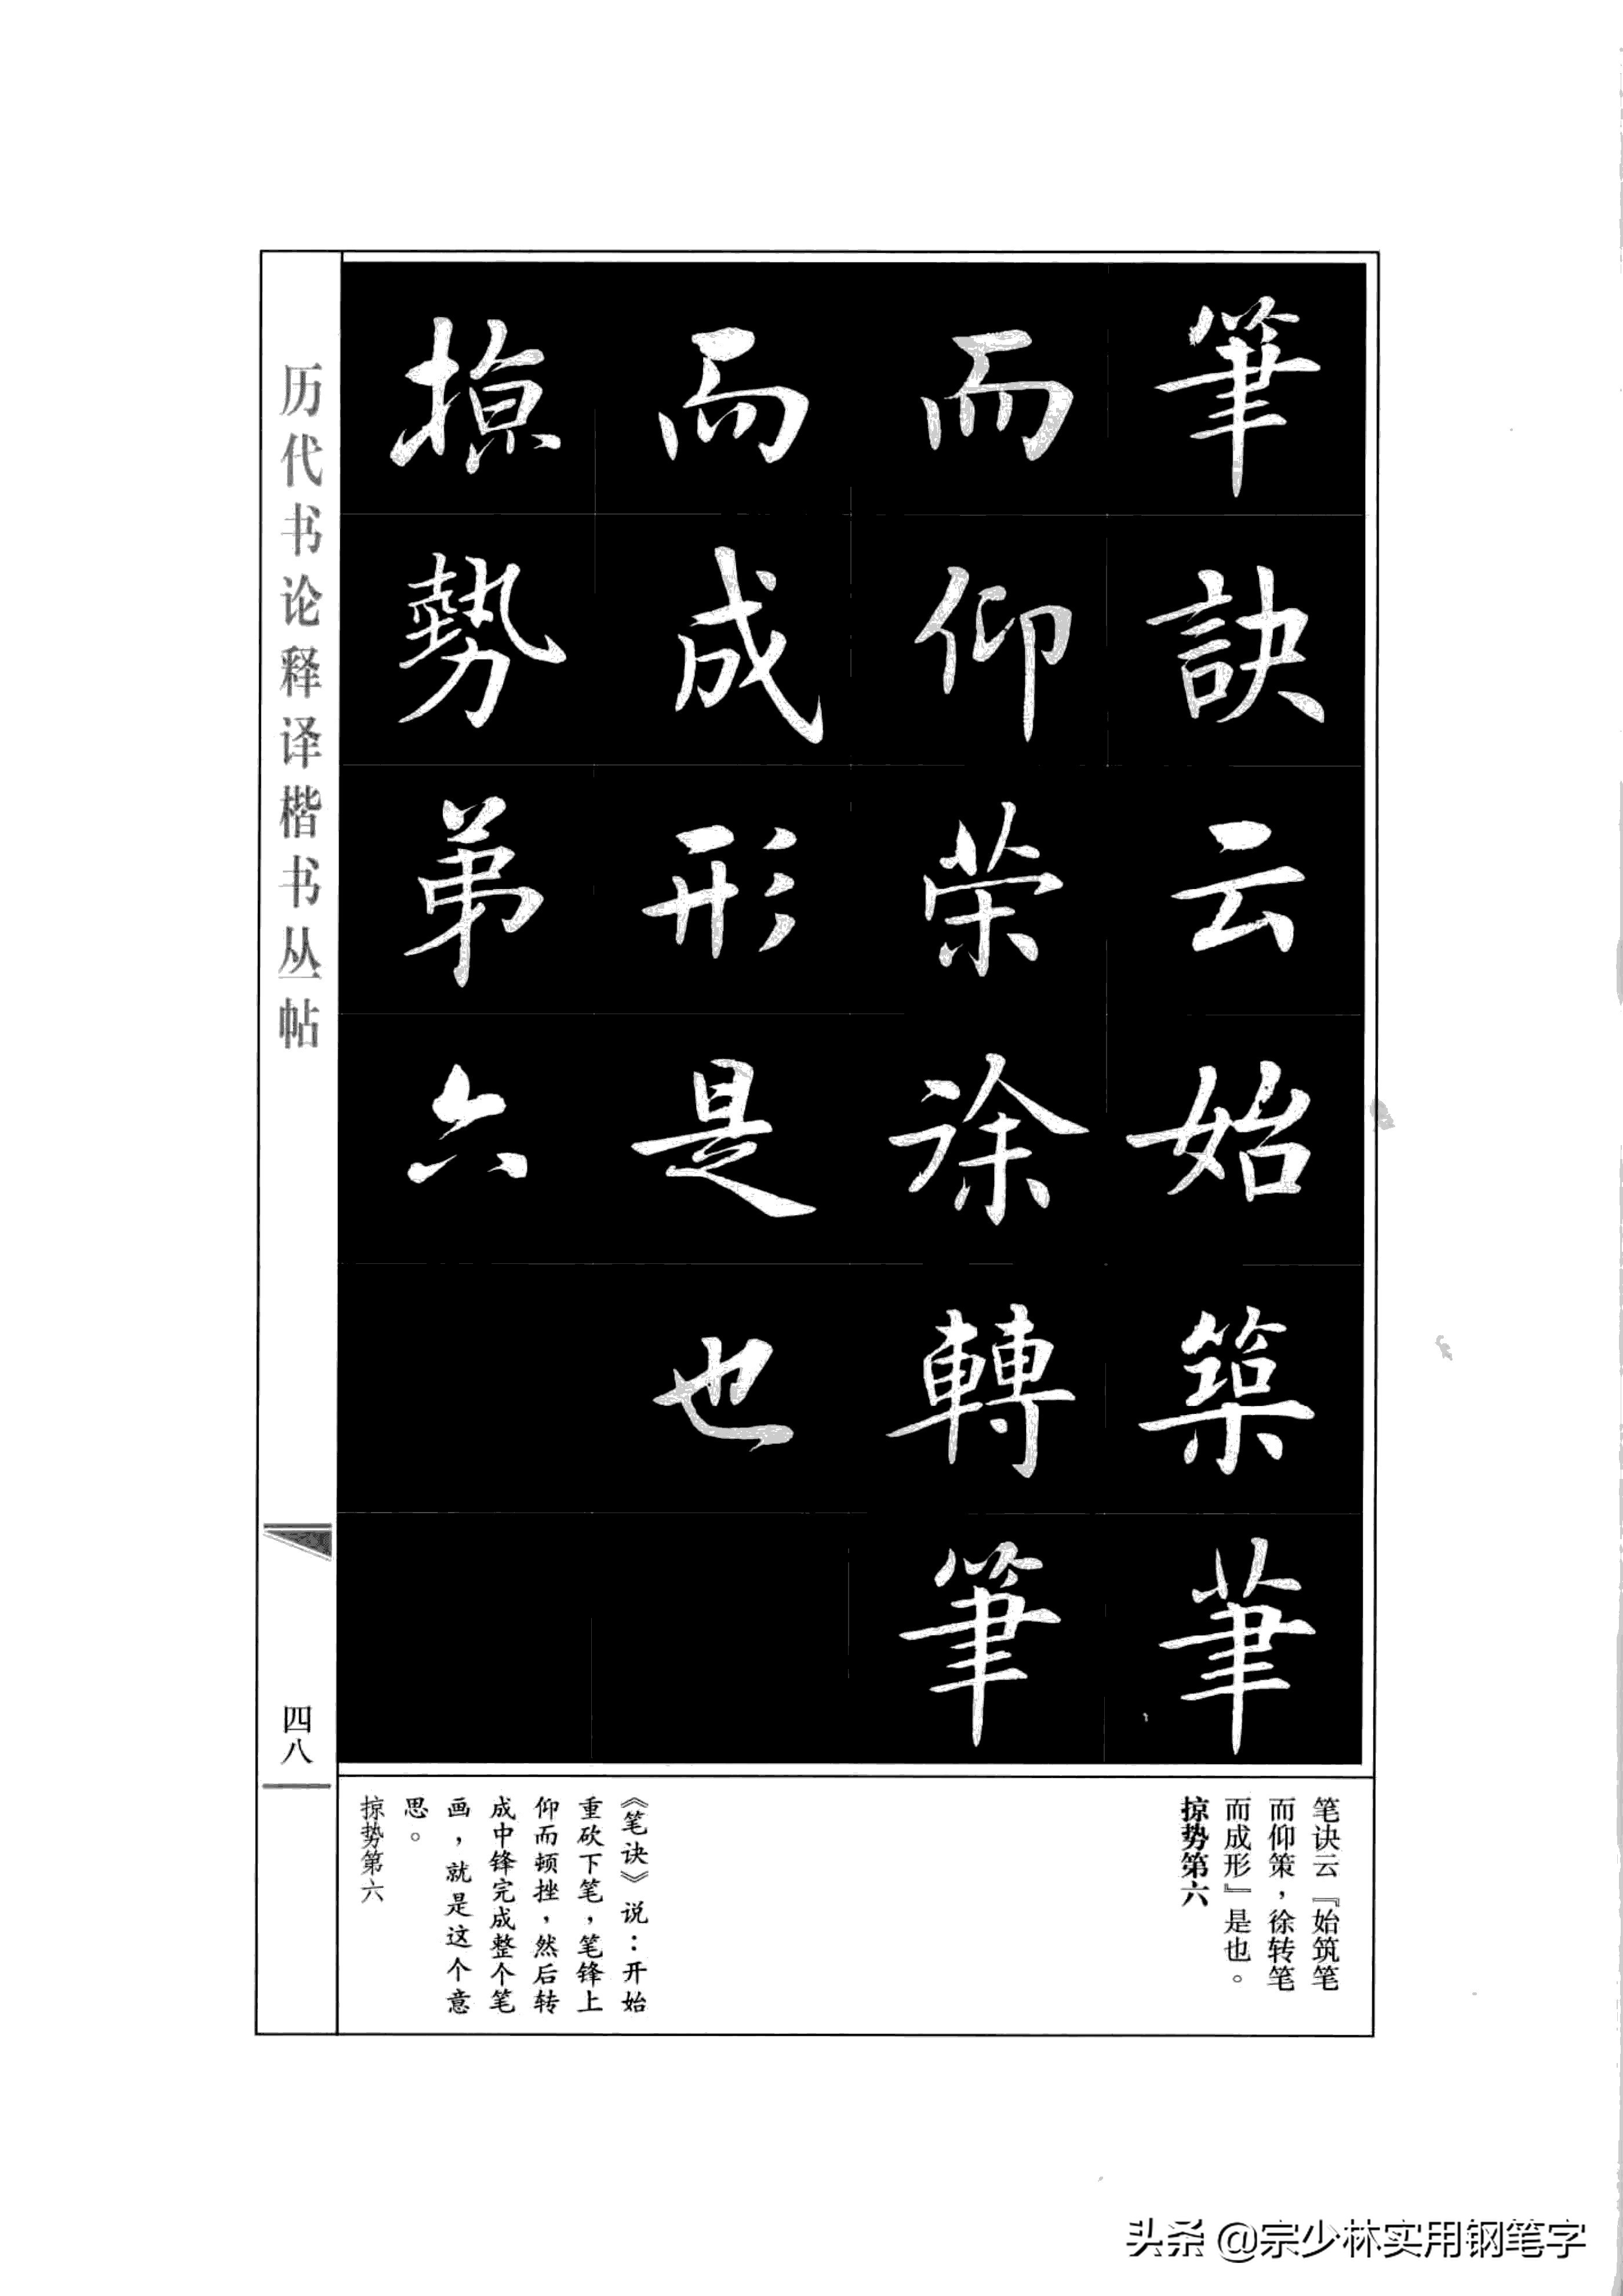 筆訣云始築筆
而仰策徐轉筆
而成形是也
掠勢弟六
历代书论释译楷书丛帖
四八
笔诀云『始筑笔
而仰策，徐转笔
而成形』是也。
掠势第六
《笔诀》说：开始
重砍下笔，笔锋上
仰而顿挫，然后转
成中锋完成整个笔
画，就是这个意
思。
掠势第六
头条 @宗少林实用钢笔字